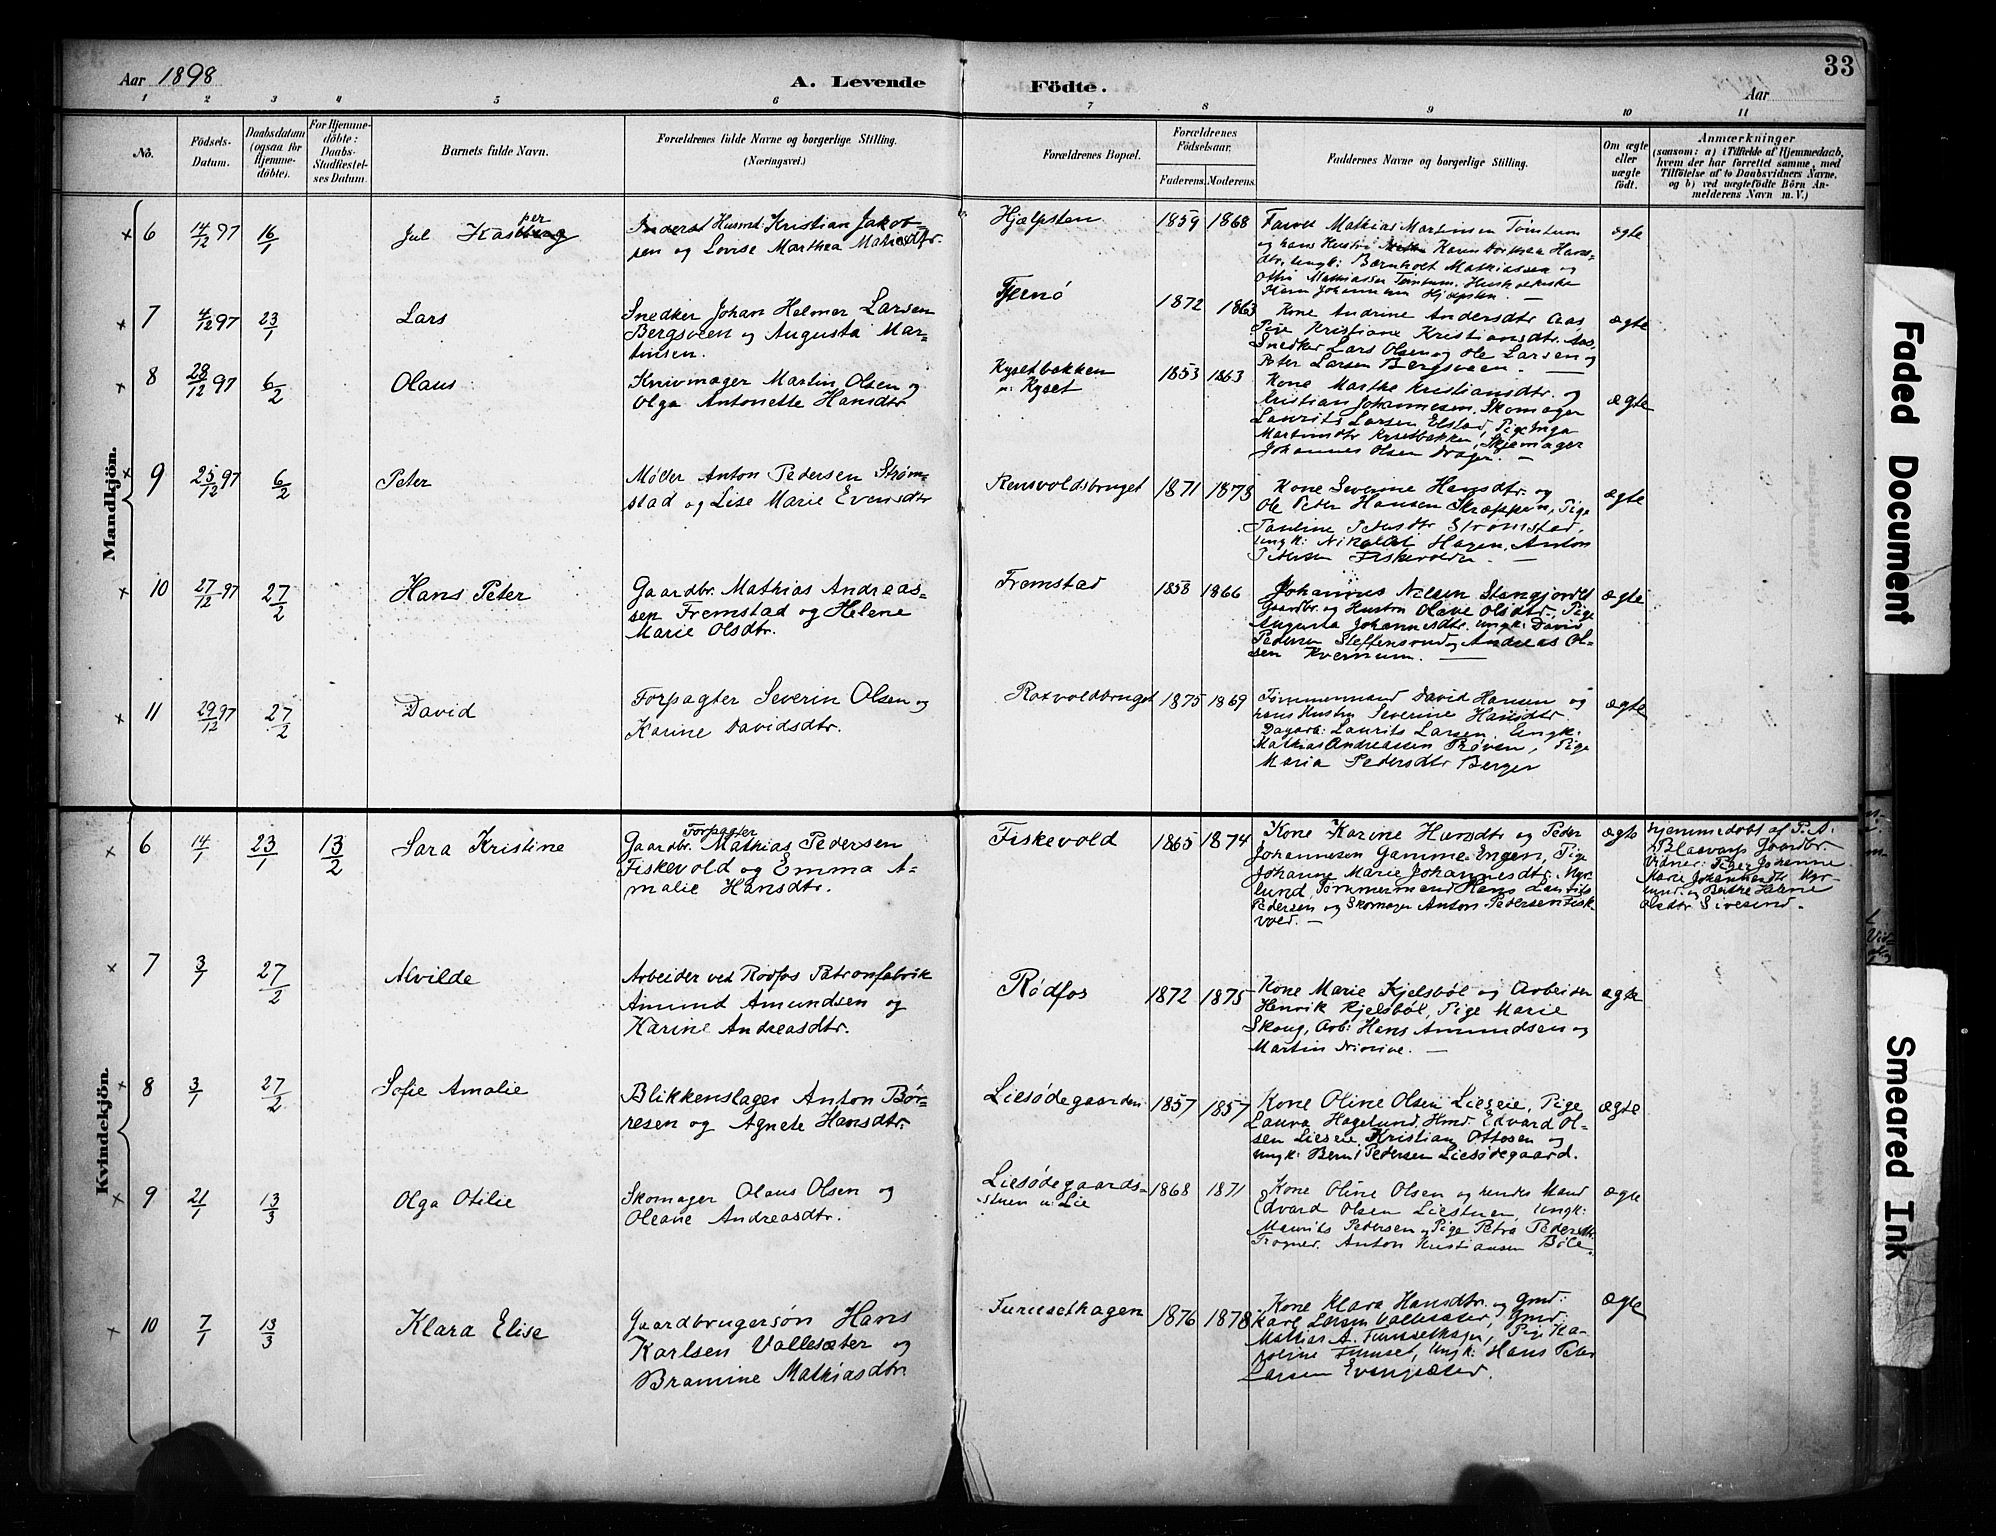 Aar 1898
A. Levende
Födte.
Aar
33
1 2 3 4 5 6 7 8 9 10 11
No.
Födsels-
Datum.
Daabsdatum
(ogsaa for
Hjemme-
döbte).
For Hjemme-
döbte:
Daabs-
Stadfæstel-
ses Datum.
Barnets fulde Navn.
Forældrenes fulde Navne og borgerlige Stilling.
(Næringsvei.)
Forældrenes Bopæl.
Forældrenes
Födselsaar.
Faderens.
Moderens.
Faddernes Navne og borgerlige Stilling.
Om ægte
eller
uægte
födt.
Anmærkninger
(saasom: a) i Tilfælde af Hjemmedaab,
hvem der har forrettet samme, med
Tilföielse af to Daabsvidners Navne,
og b) ved uægtefödte Börn An-
melderens Navn m. V.)
Mandkjön.
6 14/12 97 16/1 Jul Kasper
Inderst Husmd Kristian Jakob-
sen og Lovise Marthea Mathisdtr.
Hjælpsten 1859 1868
Farver Mathias Martinsen Tømtum
og hans Hustru Karen Dorthea Hans-
dtr, Ungk: Bernholt Mathiassen og
Otto Mathiassen Tømtum, Husholderske
Karen Johannesen Hjælpsten. —
ægte
7 4/12 97 23/1 Lars
Snedker Johan Helmer Larsen
Bergsveen og Augusta Mar-
tinsen.
Fjernø 1872 1863
Kone Andrine Andersdtr Aas
Pige Kristiane Kristiansdtr. Aas,
Snedker Lars Olsen og Ole Larsen og
Peter Larsen Bergsveen. —
ægte
8 28/12 97 6/2 Olaus
Knivmager Martin Olsen og
Olga Antonette Hansdtr
Kysetbakken
u: Kyset 1853 1863
Kone Marthe Kristiansdtr. og
Kristian Johannesen, Skomager
Laurits Larsen Elstad, Pige Inga
Martinsdtr Kysetbakken, Skomager
Johannes Olsen Drager. —
ægte
9 25/12 97 6/2 Peter
Møller Anton Pedersen Strøm-
stad og Lise Marie Evensdtr
Rensvoldsbruget 1871 1873
Kone Severine Hansdtr. og
Ole Peter Hansen Skræppen, Pige
Pauline Petersdtr Strømstad,
Ungk: Nikolai Hagen, Anton
Pedersen Fiskevolden —
ægte
10 27/12 97 27/2 Hans Peter
Gaardbr. Mathias Andreas-
sen Fremstad og Helene
Marie Olsdtr.
Fremstad 1858 1866
Johannes Nilsen Stangjordet
Gaardbr. og Hustru Olave Olsdtr. Pige
Augusta Johannesdtr. Ungk: David
Pedersen Steffensrud og Andreas Ol-
sen Kvernum. —
ægte
11 29/12 97 27/2 David
Forpagter Severin Olsen og
Karine Davidsdtr.
Roxvoldbruget 1875 1869
Tømmermand David Hansen og
hans Hustru Severine Hansdtr.
Dagarb: Laurits Larsen, Ungk:
Mathias Andreassen Prøven, Pige
Maria Pedersdtr Berger
ægte
Kvindekjön.
6 14/1 23/1 13/2 Sara Kristine
Forpagter
Gaardbr. Mathias Pedersen
Fiskevold og Emma A-
malie Hansdtr.
Fiskevold 1865 1874
Kone Karine Hansdtr og Peder
Johannesen Gamme-Engen, Pige
Johanne Marie Johannesdtr. Myr-
lund Tømmermand Hans Laurits
Pedersen og Skomager Anton Pedersen Fisk-
vold. —
ægte
Hjemmedøbt af P. A.
Blaavarp Gaardbr.
Vidner: Piger Johanne
Marie Johannesdtr Myr-
lund og Berthe Helene
Olsdtr Sivesind.
7 3/1 27/2 Alvilde
Arbeider ved Rødfos Patronfabrik
Amund Amundsen og
Karine Andreasdtr.
Rødfos 1872 1875
Kone Marie Kjelsböl og Arbeider
Henrik Kjelsböl, Pige Marie
Skoug, Arb: Hans Amundsen og
Martin Ninive. —
ægte
8 3/1 27/2 Sofie Amalie
Blikkenslager Anton Bør-
resen og Agnete Hansdtr.
Liesødegaarden 1857 1857
Kone Oline Olsen Lieseie, Pige
Laura Hagelund, Hmd. Edvard Ol-
sen Lieseie, Kristian Ottesen og
Ungk: Bernt Pedersen Liesødegaard.
ægte
9 21/1 13/3 Olga Otilie
Skomager Olaus Olsen og
Oleane Andreasdtr.
Liesødegaards-
stuen u: Lie 1868 1871
Kone Oline Olsen og hendes Mand
Edvard Olsen Liestuen, Ungk:
Maurits Pedersen og Pige Petra Pedersdtr.
Fragner. Anton Kristiansen Böle.
ægte
10 7/1 13/3 Klara Elise
Gaardbrugersøn Hans
Karlsen Vallesæter og
Bramine Mathiasdtr.
Furusethagen 1876 1878
Kone Klara Hansdtr. og Gmd:
Karl Larsen Vallesæter, Gmd:
Mathias A. Furusethagen, Pige Ka-
roline Furuset, Ungk: Hans Peter
Larsen Evenssæter.
ægte
Faded Document
Smeared Ink